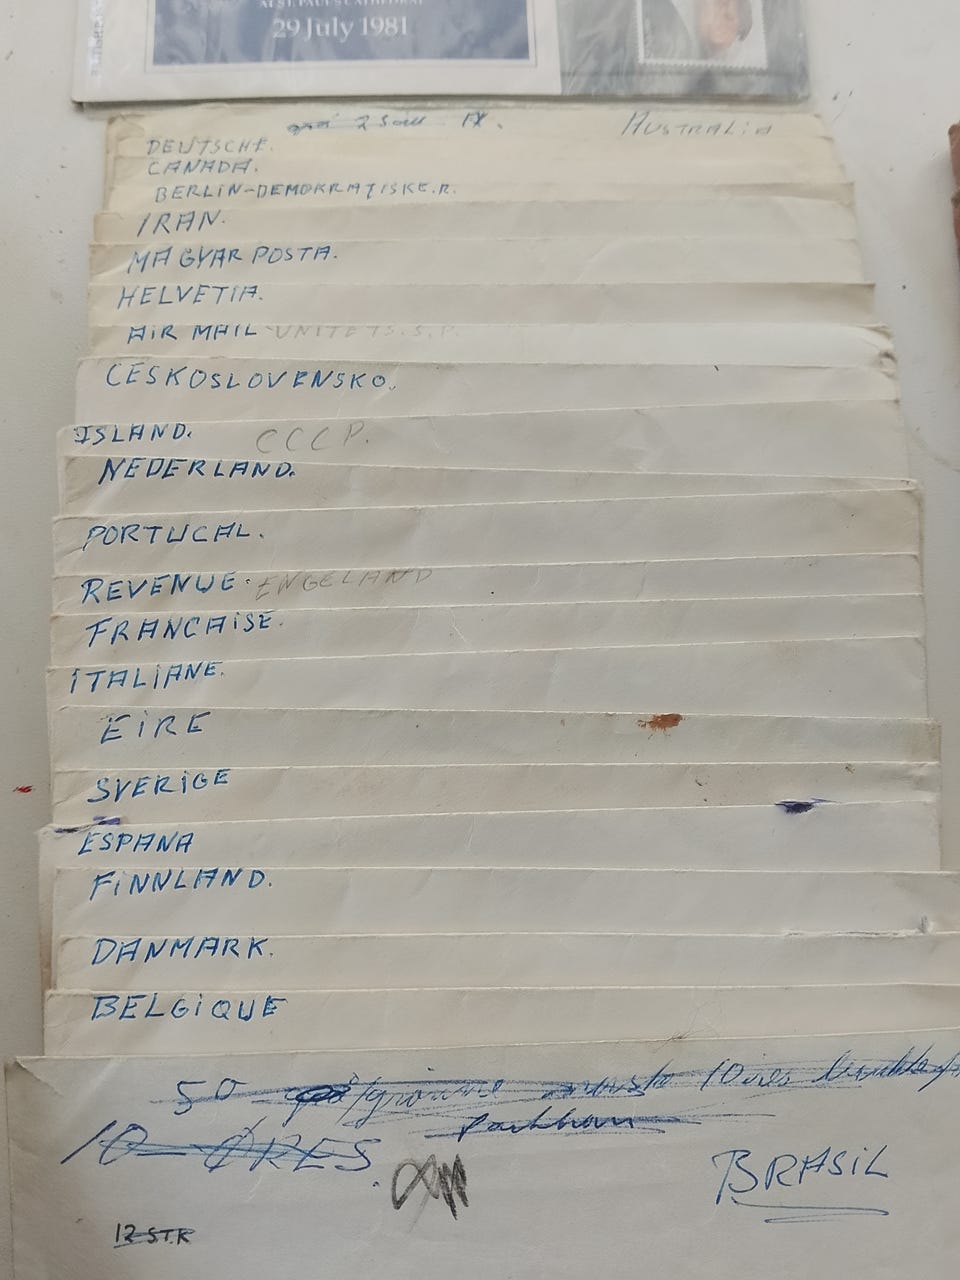 AT ST. PAUL'S CATHEDRAL
29 July 1981
AUSTRALIA
DEUTSCHE.
CANADA.
BERLIN-DEMOKRATISKE.R.
IRAN.
MAGYAR POSTA.
HELVETIA.
AIR MAIL UNITETS.S.P.
CESKOSLOVENSKO.
ISLAND. CCCP.
NEDERLAND.
PORTUCAL.
REVENUE. ENGELAND
FRANCAISE.
ITALIANE.
EIRE
SVERIGE
ESPANA
FINNLAND.
DANMARK.
BELGIQUE
50
10 ØRES.
BRASIL
12 STK